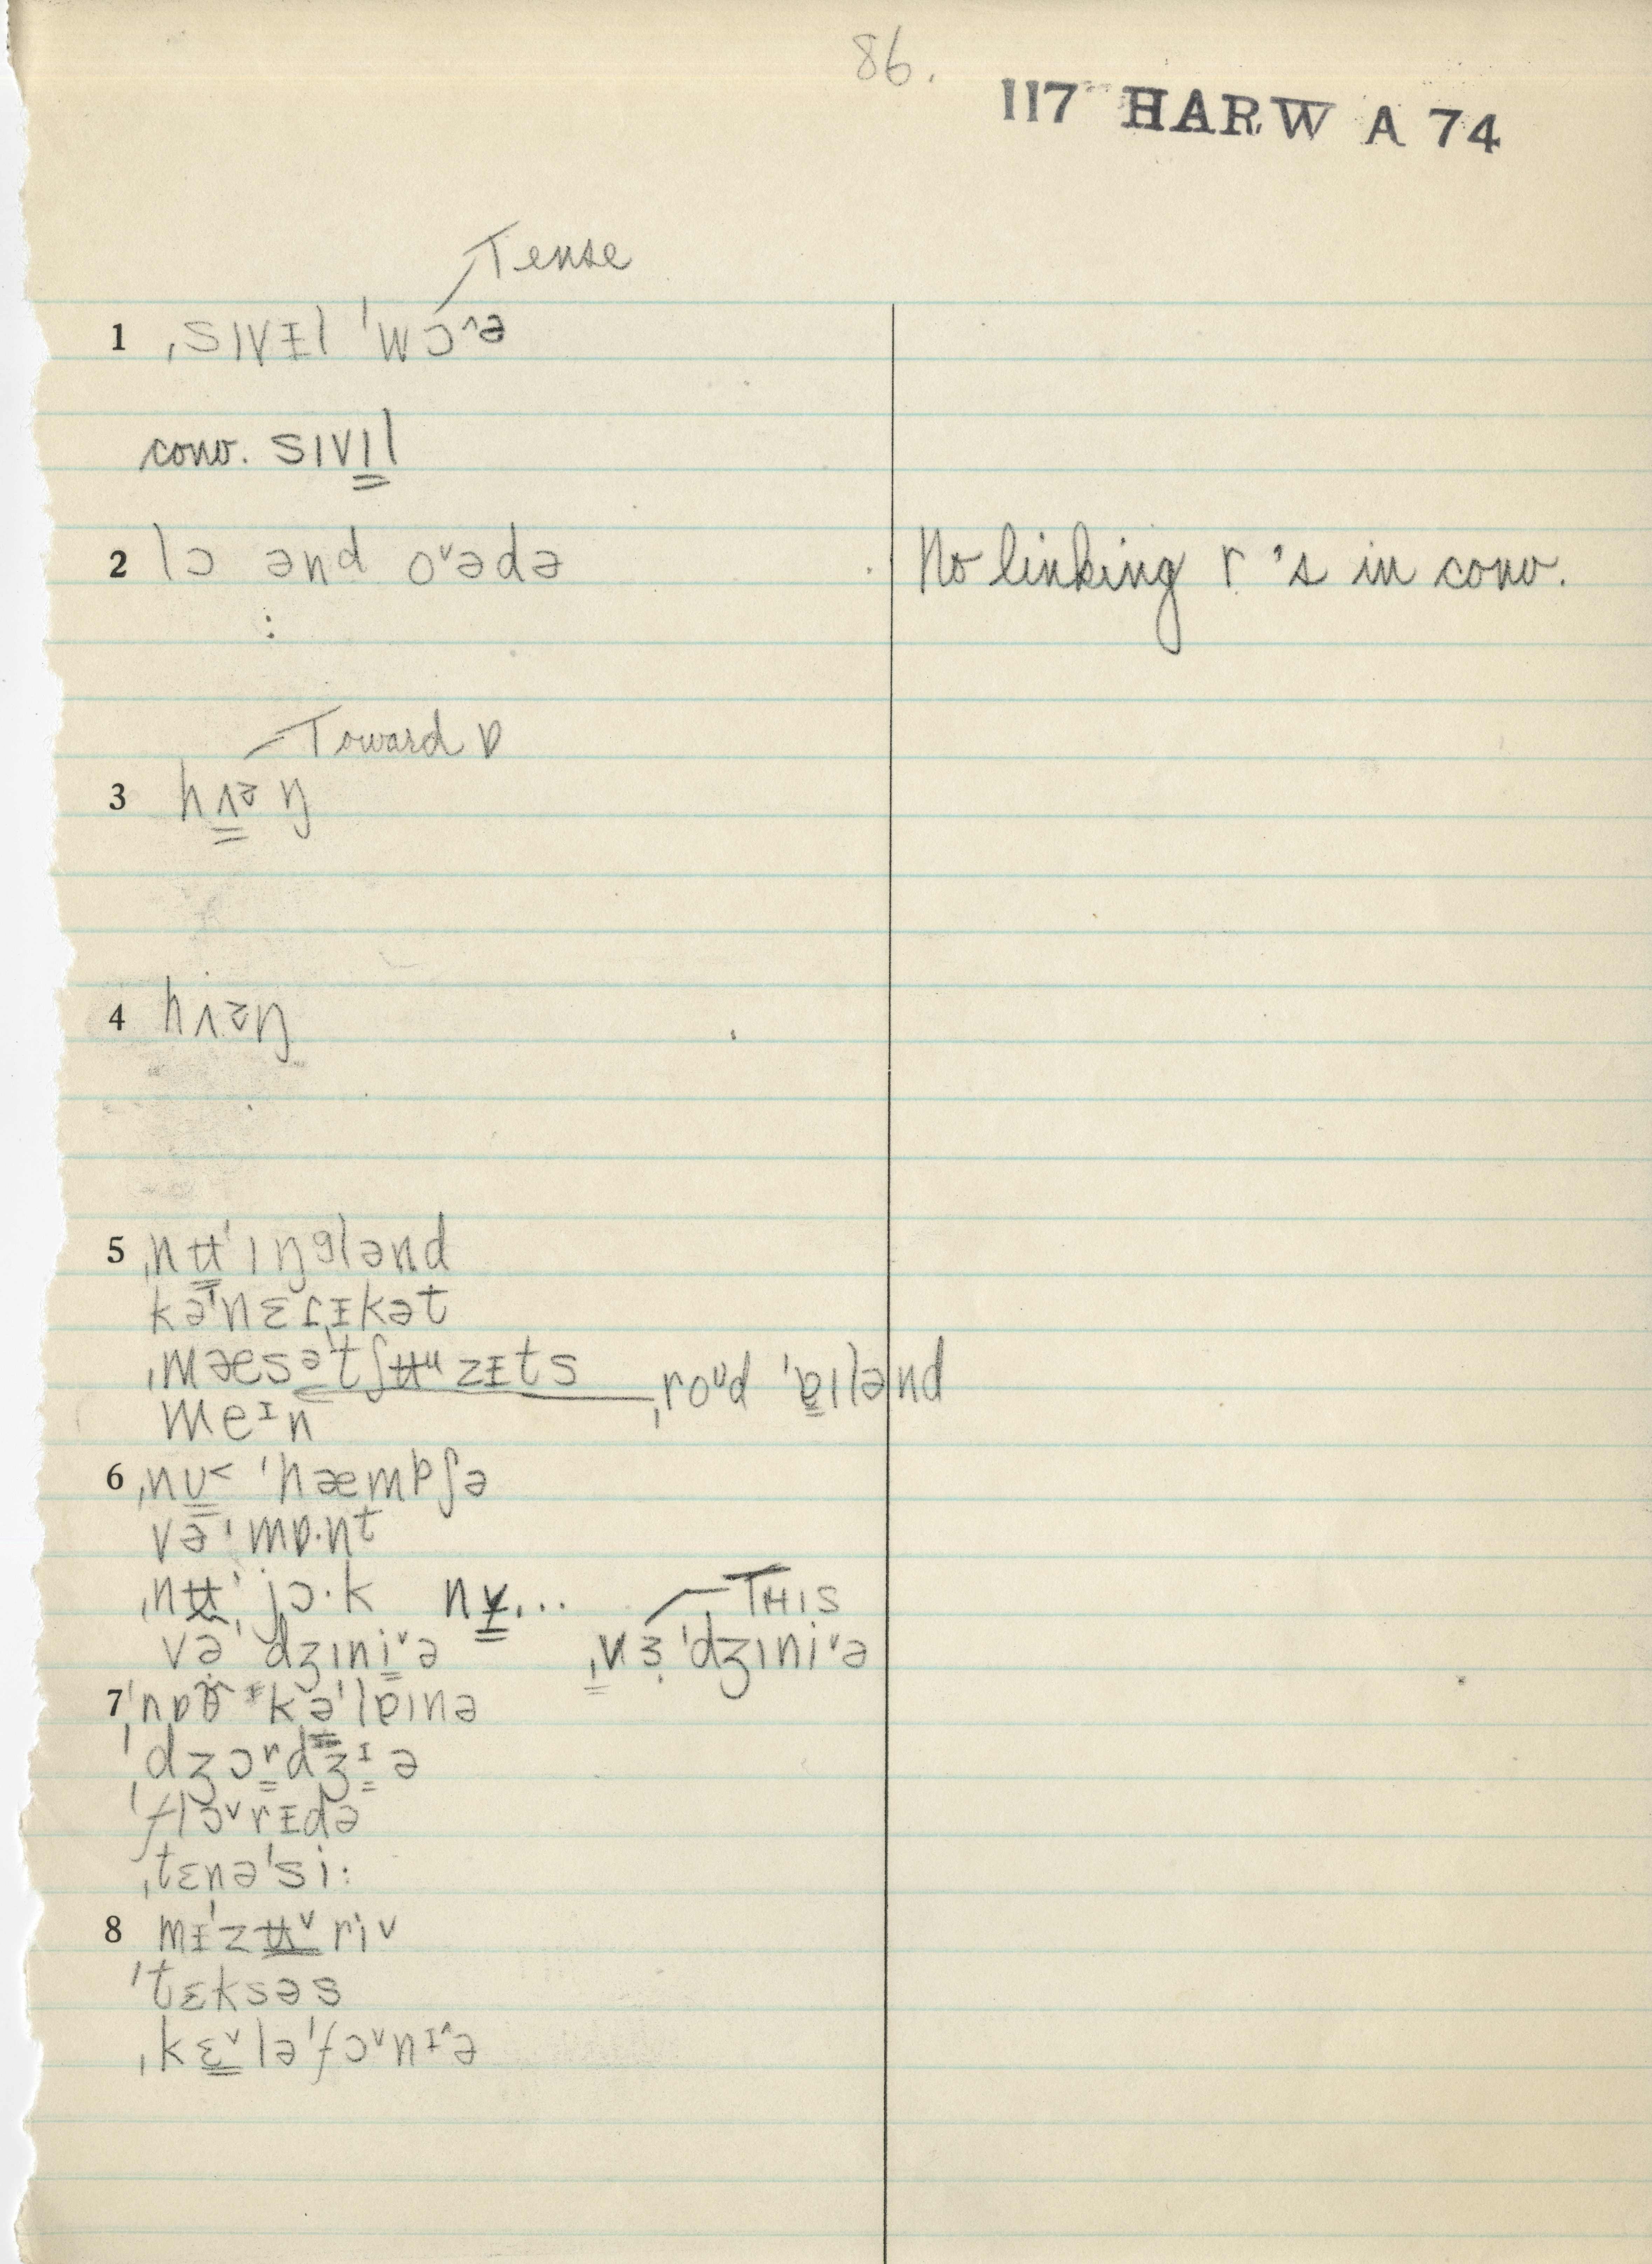 86.
117 HARW A 74
Tense
1 ˌsɪvɪ̵l ˈwɔ^ə
conv. sɪvɪl
2 lɔ ənd oᵛədə No linking r's in conv.
:
Toward ɒ
3 hʌŋ
4 hʌŋ
5 ˌnʉˈɪŋglənd
kəˈnɛɾɪ̵kət
ˌmæsəˈtʃʉᵘzɪ̵ts ˌroᶷd ˈɐɪlənd
meᶦn
6 ˌnʊ< ˈhæmpʃə
vəˈmɒ·nt
ˌnʉˈjɔ·k nʏ... THIS
vəˈdʒɪniᵛə ˌvɜˈdʒɪniᵛə
7 kəˈlɐɪnə
ˈdʒɔʳdʒᶦə
ˈflɔᵛrɪ̵də
ˌtɛnəˈsi:
8 mɪ̵ˈzʉᵛriᵛ
ˈtɛksəs
ˌkɛᵛləˈfɔᵛnɪ^ə